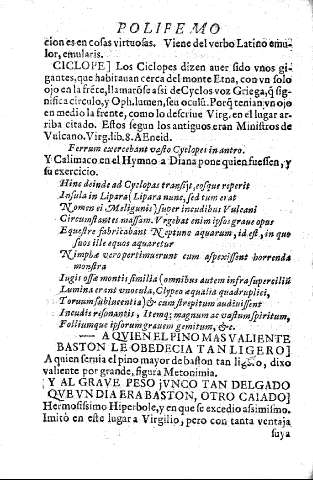 POLIFEMO
cion es en cosas virtuosas. Viene del verbo Latino emu-
lor, emularis.
CICLOPE] Los Ciclopes dizen auer sido vnos gi-
gantes, que habitauan cerca del monte Etna, con vn solo
ojo en la frẽte, llamarõse asi de Cyclos voz Griega, q̃ sig-
nifica circulo, y Oph, lumen, seu oculũ. Porq̃ teniã vn ojo
en medio la frente, como lo descriue Virg. en el lugar ar-
riba citado. Estos segun los antiguos eran Ministros de
Vulcano. Virg. lib. 8. AEneid.
Ferrum exercebant vasto Cyclopes in antro.
Y Calimaco en el Hymno a Diana pone quien fuessen, y
su exercicio.
Hinc deinde ad Cyclopas transijt, eosque reperit
Insula in Lipara (Lipara nunc, sed tum erat
Nomen ei Meligunis) super incudibus Vulcani
Circumstantes massam. Vrgebat enim ipsos graue opus
Equestre fabricabant Neptuno aquarum, id est, in quo
suos ille equos aquaretur
Nimphæ vero pertimuerunt cum aspexissent horrenda
monstra
Iugis ossæ montis similia (omnibus autem infra supercilliũ
Lumina erant vnocula. Clypeo æqualia quadruplici,
Toruum sublucentia) & cum strepitum audiuissent
Incudis resonantis, Itemq; magnum ac vastum spiritum,
Folliumque ipsorum grauem gemitum, &c.
— A QVIEN EL PINO MAS VALIENTE
BASTON LE OBEDECIA TAN LIGERO]
A quien seruia el pino mayor de baston tan ligero, dixo
valiente por grande, figura Metonimia.
¡Y AL GRAVE PESO IVNCO TAN DELGADO
QVE VN DIA ERA BASTON, OTRO CAIADO]
Hermosissimo Hiperbole, y en que se excedio assimismo.
Imitò en este lugar a Virgilio, pero con tanta ventaja
suya